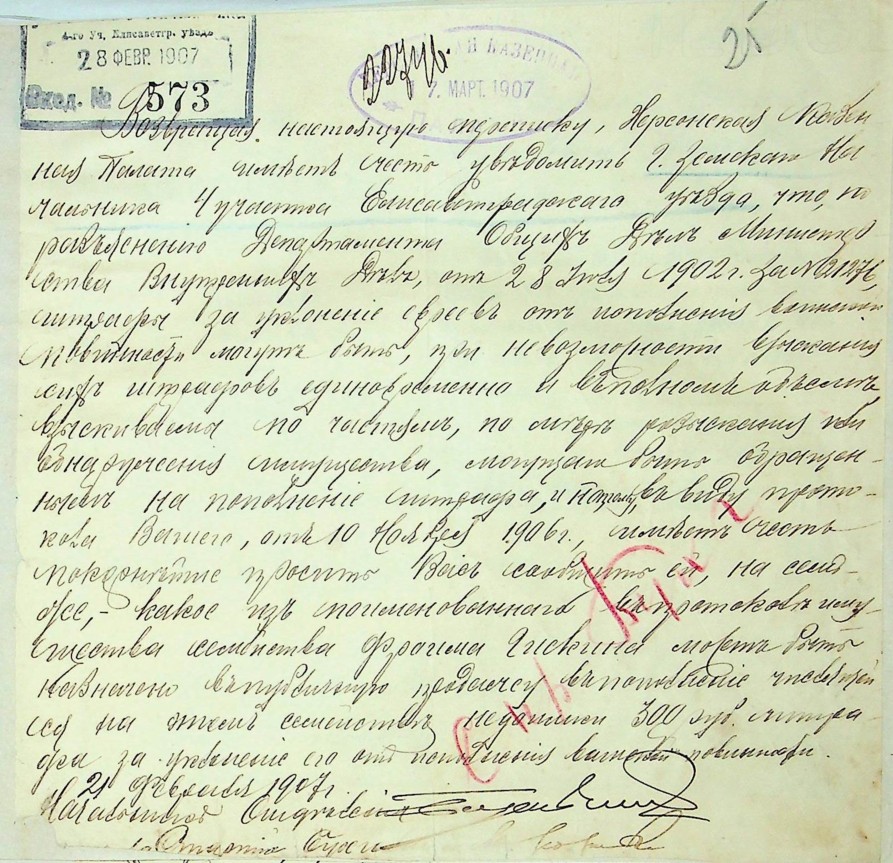 4-го Уч. Елисаветгр. уѣзда
28 ФЕВР. 1907
Вход. № 573
КАЗЕННАЯ
7. МАРТ. 1907
25
Возвращая настоящую переписку, Херсонская Казен
ная Палата имѣетъ честь увѣдомить Г. Земскаго На
чальника 4 участка Елисаветградскаго уѣзда, что, по
разъясненію Департамента Общихъ Дѣлъ Министер
ства Внутреннихъ Дѣлъ, отъ 28 1902 г. за №
штрафы за уклоненіе евреевъ отъ исполненія воинской
повинности могутъ быть, при невозможности взысканія
сихъ штрафовъ единовременно и въ полномъ объемѣ,
взыскиваемы по частямъ, по мѣрѣ розысканія или
обнаруженія имущества, могущаго быть обращен-
нымъ на пополненіе штрафа, и потому, въ виду прото-
кола Вашего, отъ 10 Ноября 1906 г., имѣетъ честь
покорнѣйше просить Васъ сообщить ей, на семъ-
же,- какое изъ поименованнаго въ протоколѣ иму-
щества семейства Фроима может быть
назначено въ публичную продажу въ пополненіе числящей
ся на этомъ семействѣ недоимки 300 руб. штра-
фа за уклоненіе его отъ исполненія воинской повинности.
21 Февраля 1907 г.
Начальникъ Отдѣленія